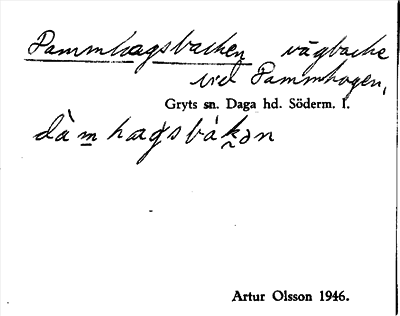 Dammhagsbacken vägbacke
vid Dammhagen,
Gryts sn. Daga hd. Söderm. l.
dàm̲hagsbák̰ən
Artur Olsson 1946.